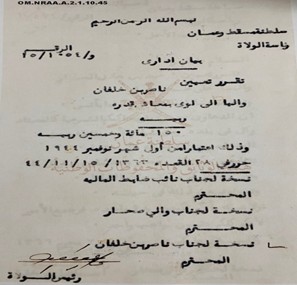 OM.NRAA.A.2.1.10.45
بسم الله الرحمن الرحيم
سلطنة مسقط وعمان
نظارة الولاة
الرقم
و/١٠٥٤/٢٥
بيان ادارى
تقرر تعيين
ناصر بن خلفان
واليا الى لوى بمعاش قدره
ربيه
١٥٠ مائة وخمسين ربيه
وذلك اعتبارا من أول شهر نوفمبر ١٩٤٤
حرر في ٢٨ القعده ١٣٦٣ ٤٤/١١/١٥
نسخة لجناب نائب ضابط الماليه
المحترم
نسخة لجناب والي صحار
المحترم
نسخة لجناب ناصر بن خلفان
المحترم
الولاة